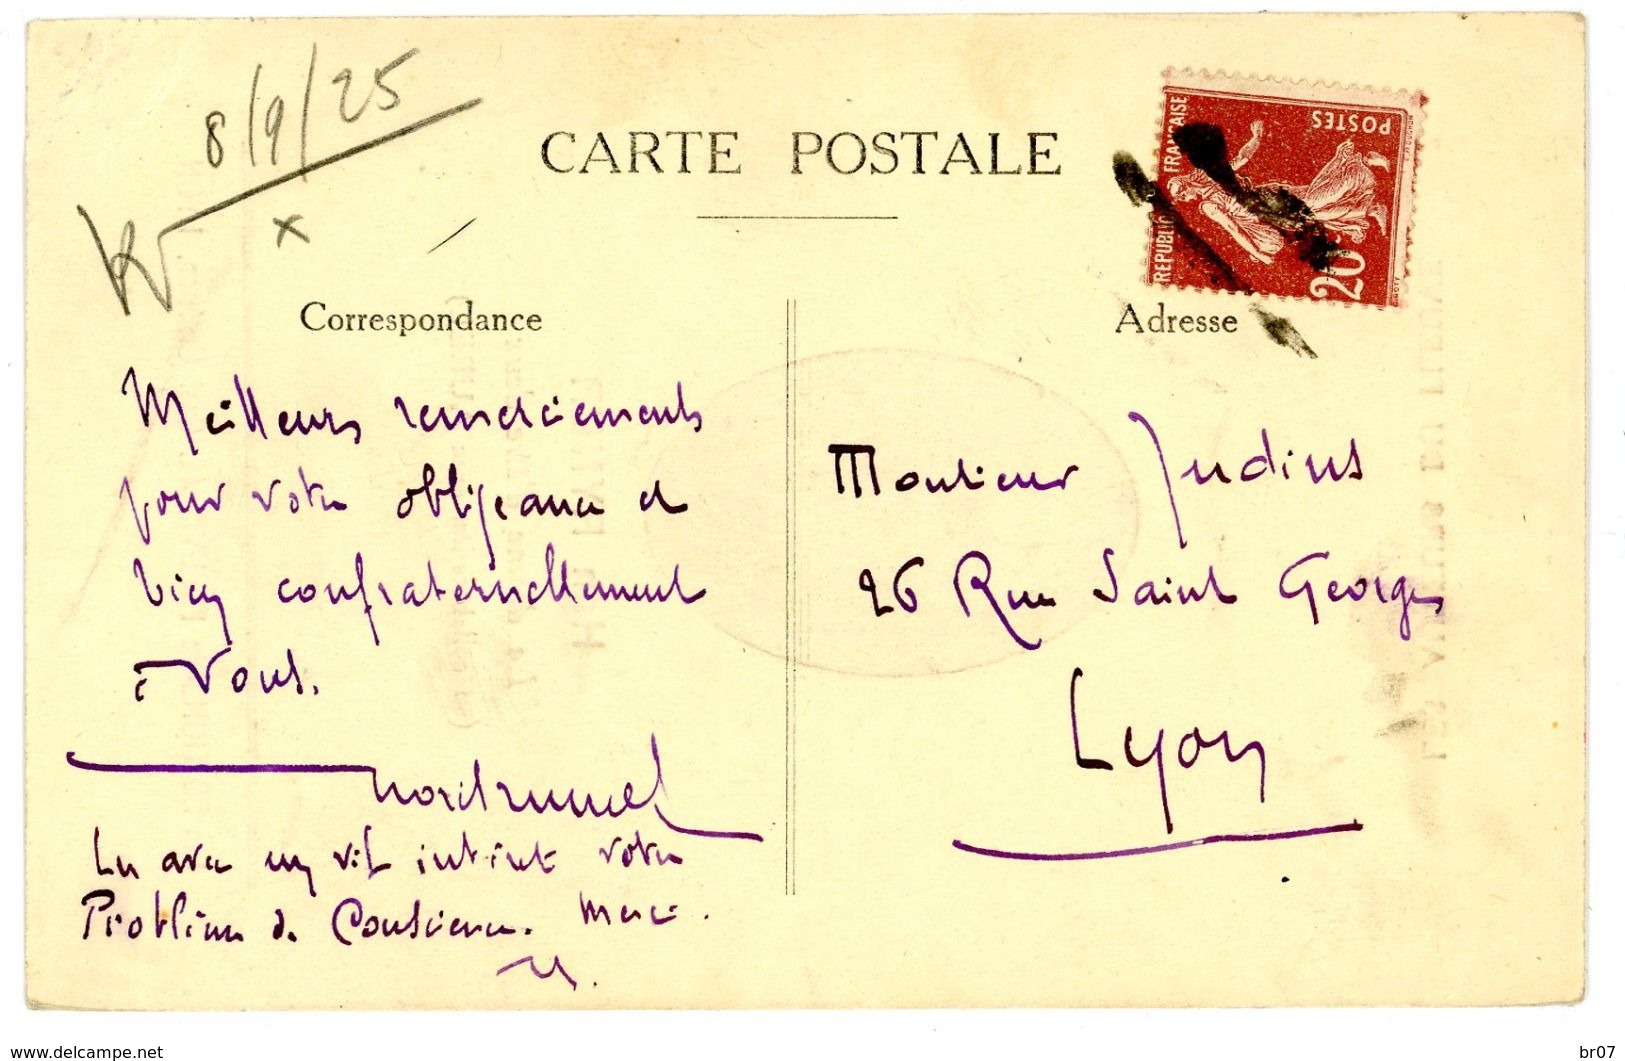 8/9/25
x
CARTE POSTALE
REPUBLIQUE FRANÇAISE
POSTES
20
Correspondance
Adresse
Meilleurs remerciements
pour votre obligeance et
bien confraternellement
à vous.
Lu avec un vif intérêt votre
Problème de Conscience. Merci.
N.
Monsieur Judius
26 Rue Saint Georges
Lyon
www.delcampe.net
br07